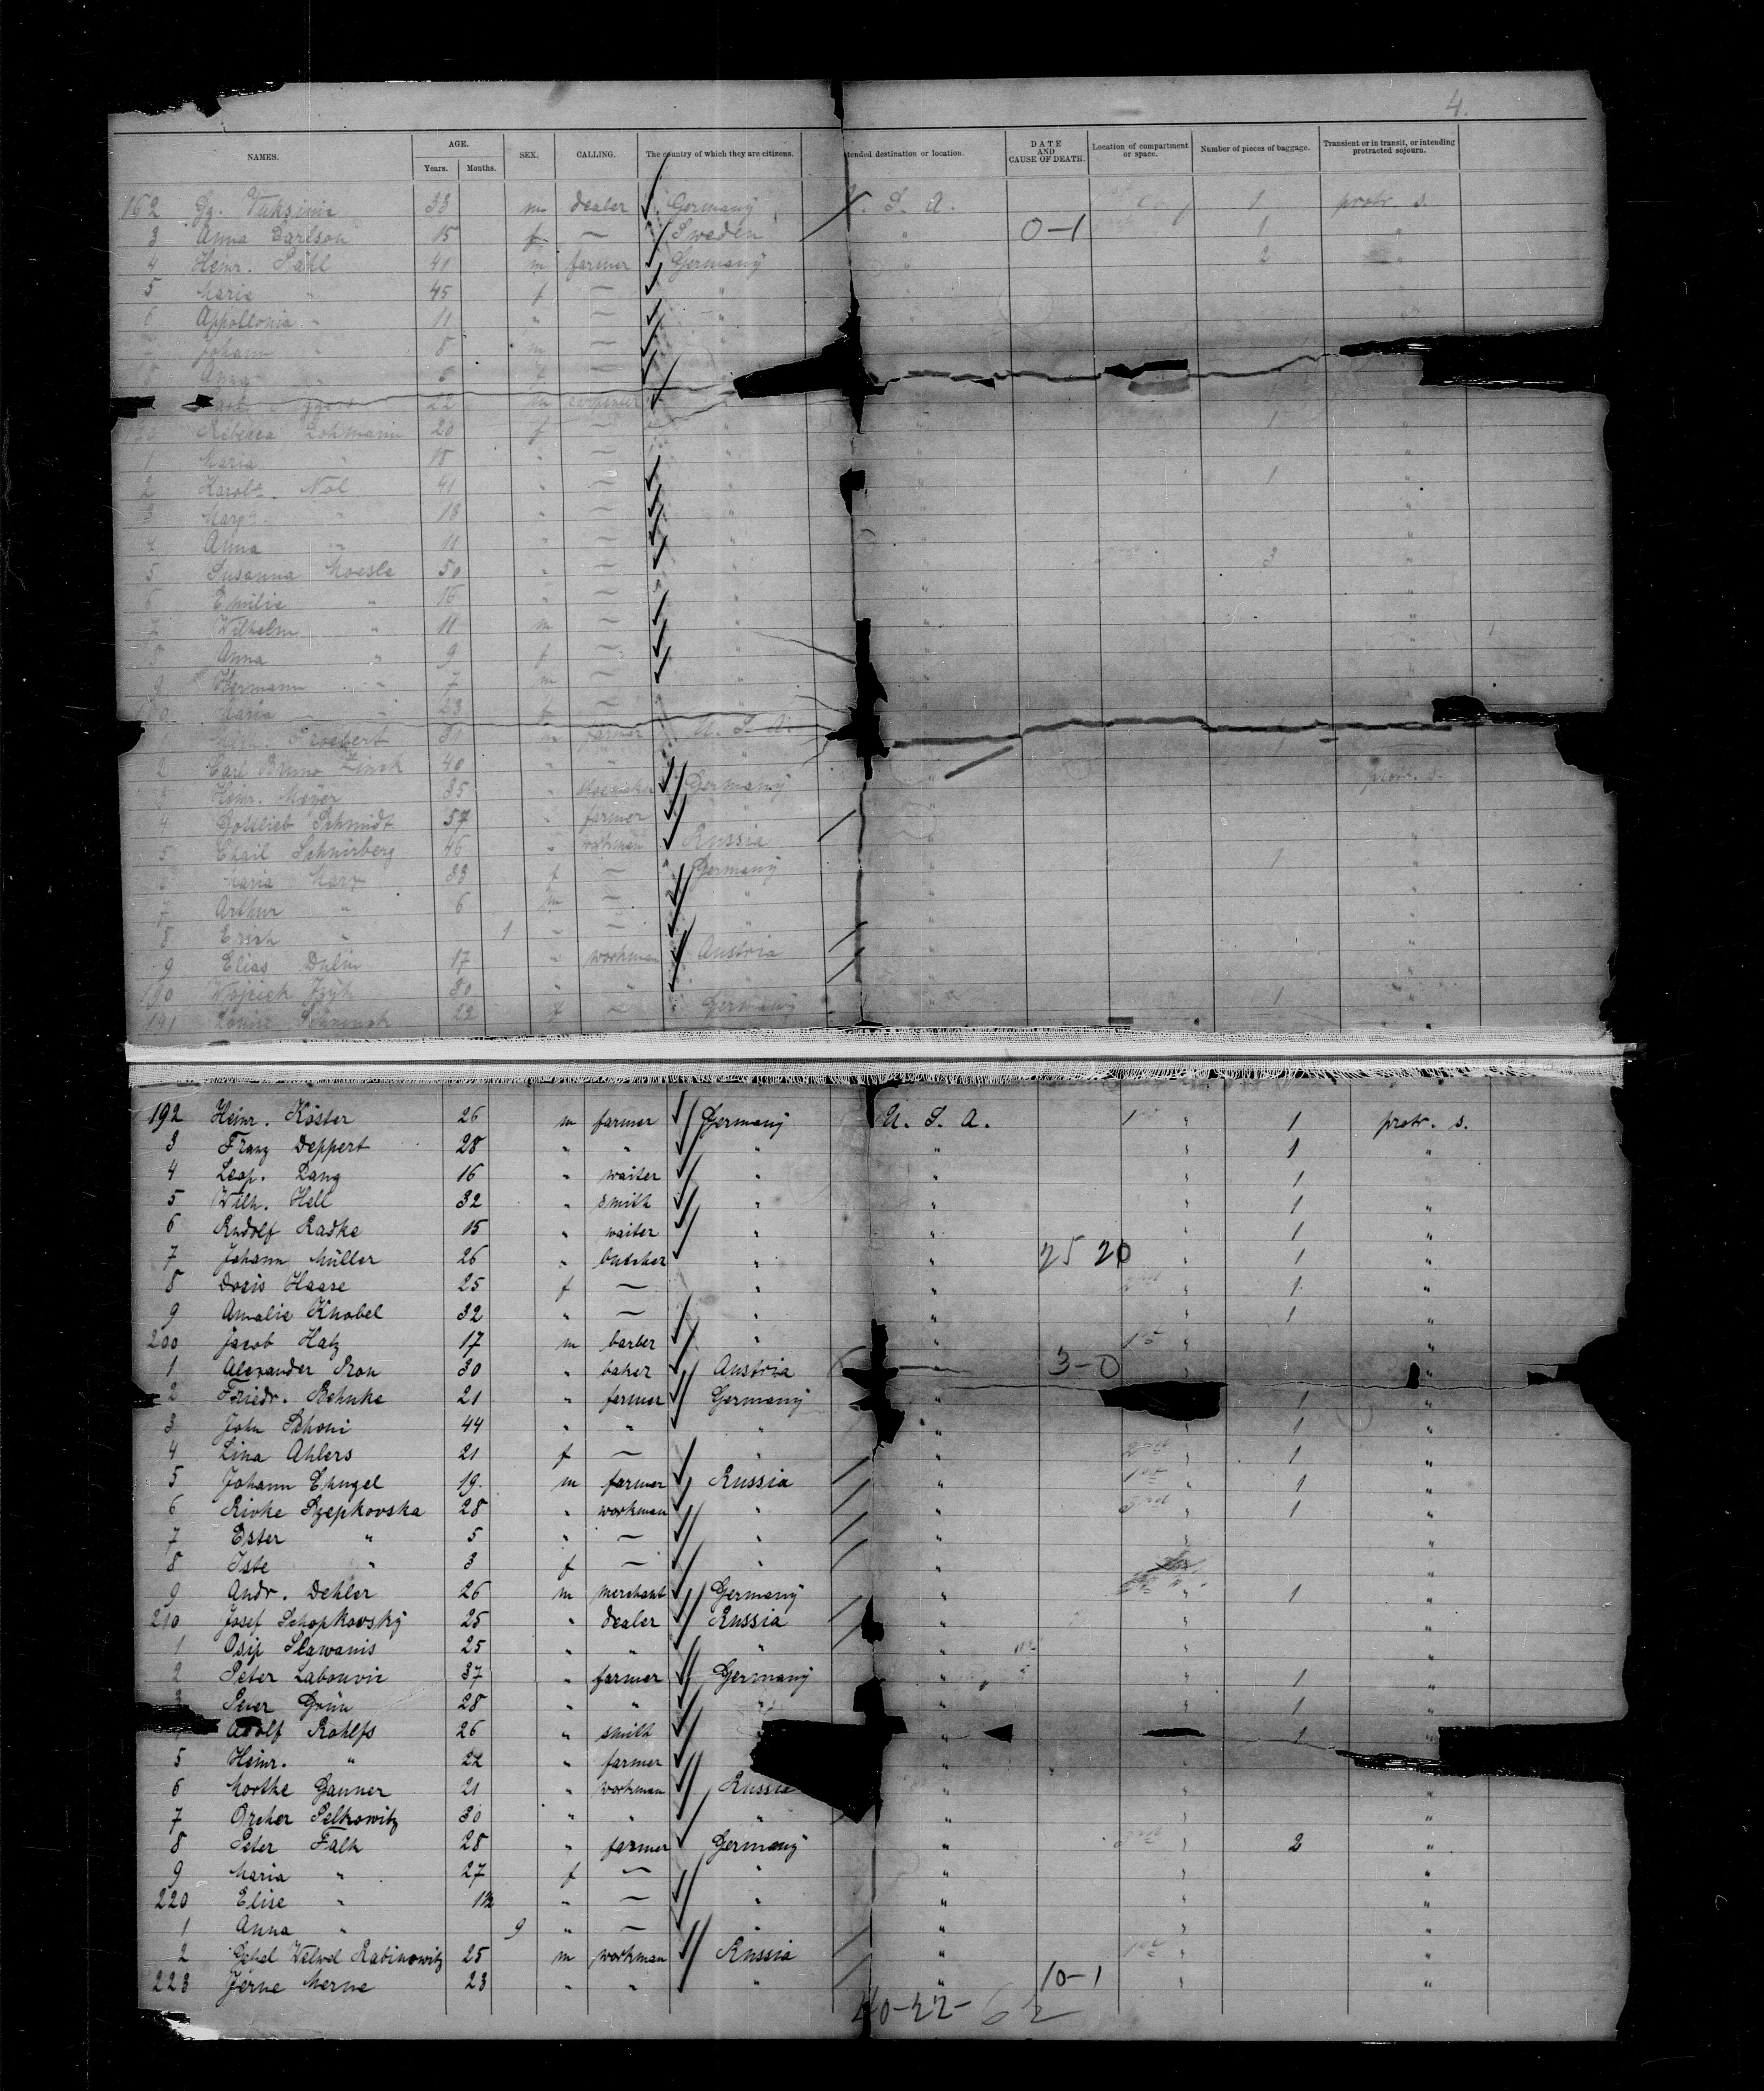 4.
NAMES. AGE. SEX. CALLING. The country of which they are citizens. tended destination or location. DATE AND CAUSE OF DEATH. Location of compartment or space. Number of pieces of baggage. Transient or in transit, or intending protracted sojourn.
Years. Months.
162 33 m dealer Germany . S. A. 1 protr. s.
3 Anna Carlson 15 f — Sweden " 0-1 1 "
4 Heinr. Pahl 41 m farmer Germany " 2 "
5 Maria " 45 f — "
6 Appollonia " 11 " — " " "
7 Johann " 8 m —
8 Anna " f —
22 m carpenter
Rebecca Lohmann 20 f — " 1 "
1 Maria " 18 " — " " "
2 Karol. Nol 41 " — " " 1 "
3 Marg. " 13 " — " " "
4 Anna " 11 " — " " "
5 Susanna Moesle 50 " — " 3 "
6 Emilie " 16 " — " " "
7 Wilhelm " 11 m — " " "
8 Anna " 9 f — " " "
9 Hermann " 7 m — " " "
Maria " 23 f —
31 m farmer U. S. A.
2 Carl Bruno Zinck 40 " " " "
3 Heinr. Meyer 35 " shoemaker Germany " protr. s.
4 Gottlieb Schmidt 57 " farmer " "
5 Chail Schnirberg 46 " workman Russia " "
6 Maria Marx 33 f — Germany " 1 "
7 Arthur " 6 m — " " "
8 Erich " 1 " — " " "
9 Elias Dulin 17 " workman Austria " "
190 Wojciech 30 " " " " "
191 22 f — Germany 1 "
192 Heinr. Köster 26 m farmer Germany U. S. A. 1st " 1 protr. s.
3 Franz Deppert 28 " " " " " 1 "
4 Leop. Lang 16 " waiter " " " 1 "
5 Wilh. Hell 32 " smith " " " 1 "
6 Rudolf Radke 15 " waiter " " " 1 "
7 Johann Müller 26 " butcher " " 25 20 " 1 "
8 Doris Haase 25 f — " " 2nd " 1 "
9 Amalie Knobel 32 " — " " " 1 "
200 Jacob Hatz 17 m barber " " 1st " "
1 Alexander Pron 30 " baker Austria " 3-0 " "
2 Friedr. Behnke 21 " farmer Germany " 1 "
3 John Schoni 44 " " " " " 1 "
4 Lina Ahlers 21 f — " " 2nd " 1 "
5 Johann Ehugel 19. m farmer Russia " 1st " 1 "
6 Rivke Szepkovska 28 " workman " " 3rd " 1 "
7 Ester " 5 " — " " " "
8 Iste " 3 f — " " "
9 Andr. Dehler 26 m merchant Germany " " 1 "
210 Josef Schopkovsky 25 " dealer Russia " " "
1 Osip Slawanis 25 " " " " " "
2 Peter Labouvie 37 " farmer Germany " " 1 "
3 Peter Grün 28 " " " " " 1 "
Adolf Rohlfs 26 " smith " 1 "
5 Heinr. " 22 " farmer " "
6 Morthe Ganner 21 " workman Russia " " "
7 Orcher Pelkowitz 30 " " " " " "
8 Peter Falk 28 " farmer Germany " 3rd " 2 "
9 Maria " 27 f — " " " "
220 Elise " 1½ " — " " " "
1 Anna " 9 " — " " " "
2 Welwel Rabinowitz 25 m workman Russia " 1st " "
223 Jerne Merne 23 " " " " 10-1 " "
40-22-62